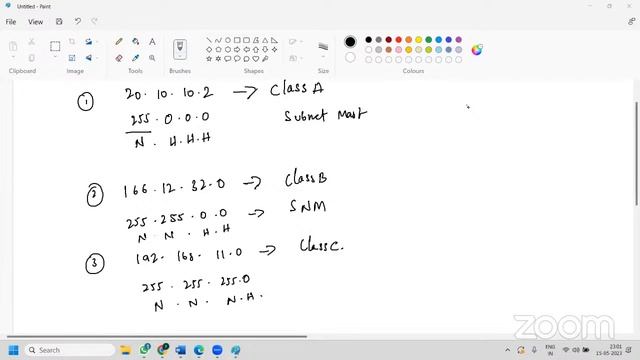 Untitled - Paint
File View
Clipboard Image Tools Brushes Shapes Size Colours
① 20.10.10.2 → Class A
255.0.0.0 Subnet Mast
N . H.H.H
② 166.12.32.0 → Class B
255.255.0.0 → SNM
N N . H.H
③ 192.168.11.0 → Class C.
255.255.255.0
N . N . N.H.
zoom
Search
ENG
IN
23:01
15-05-2023